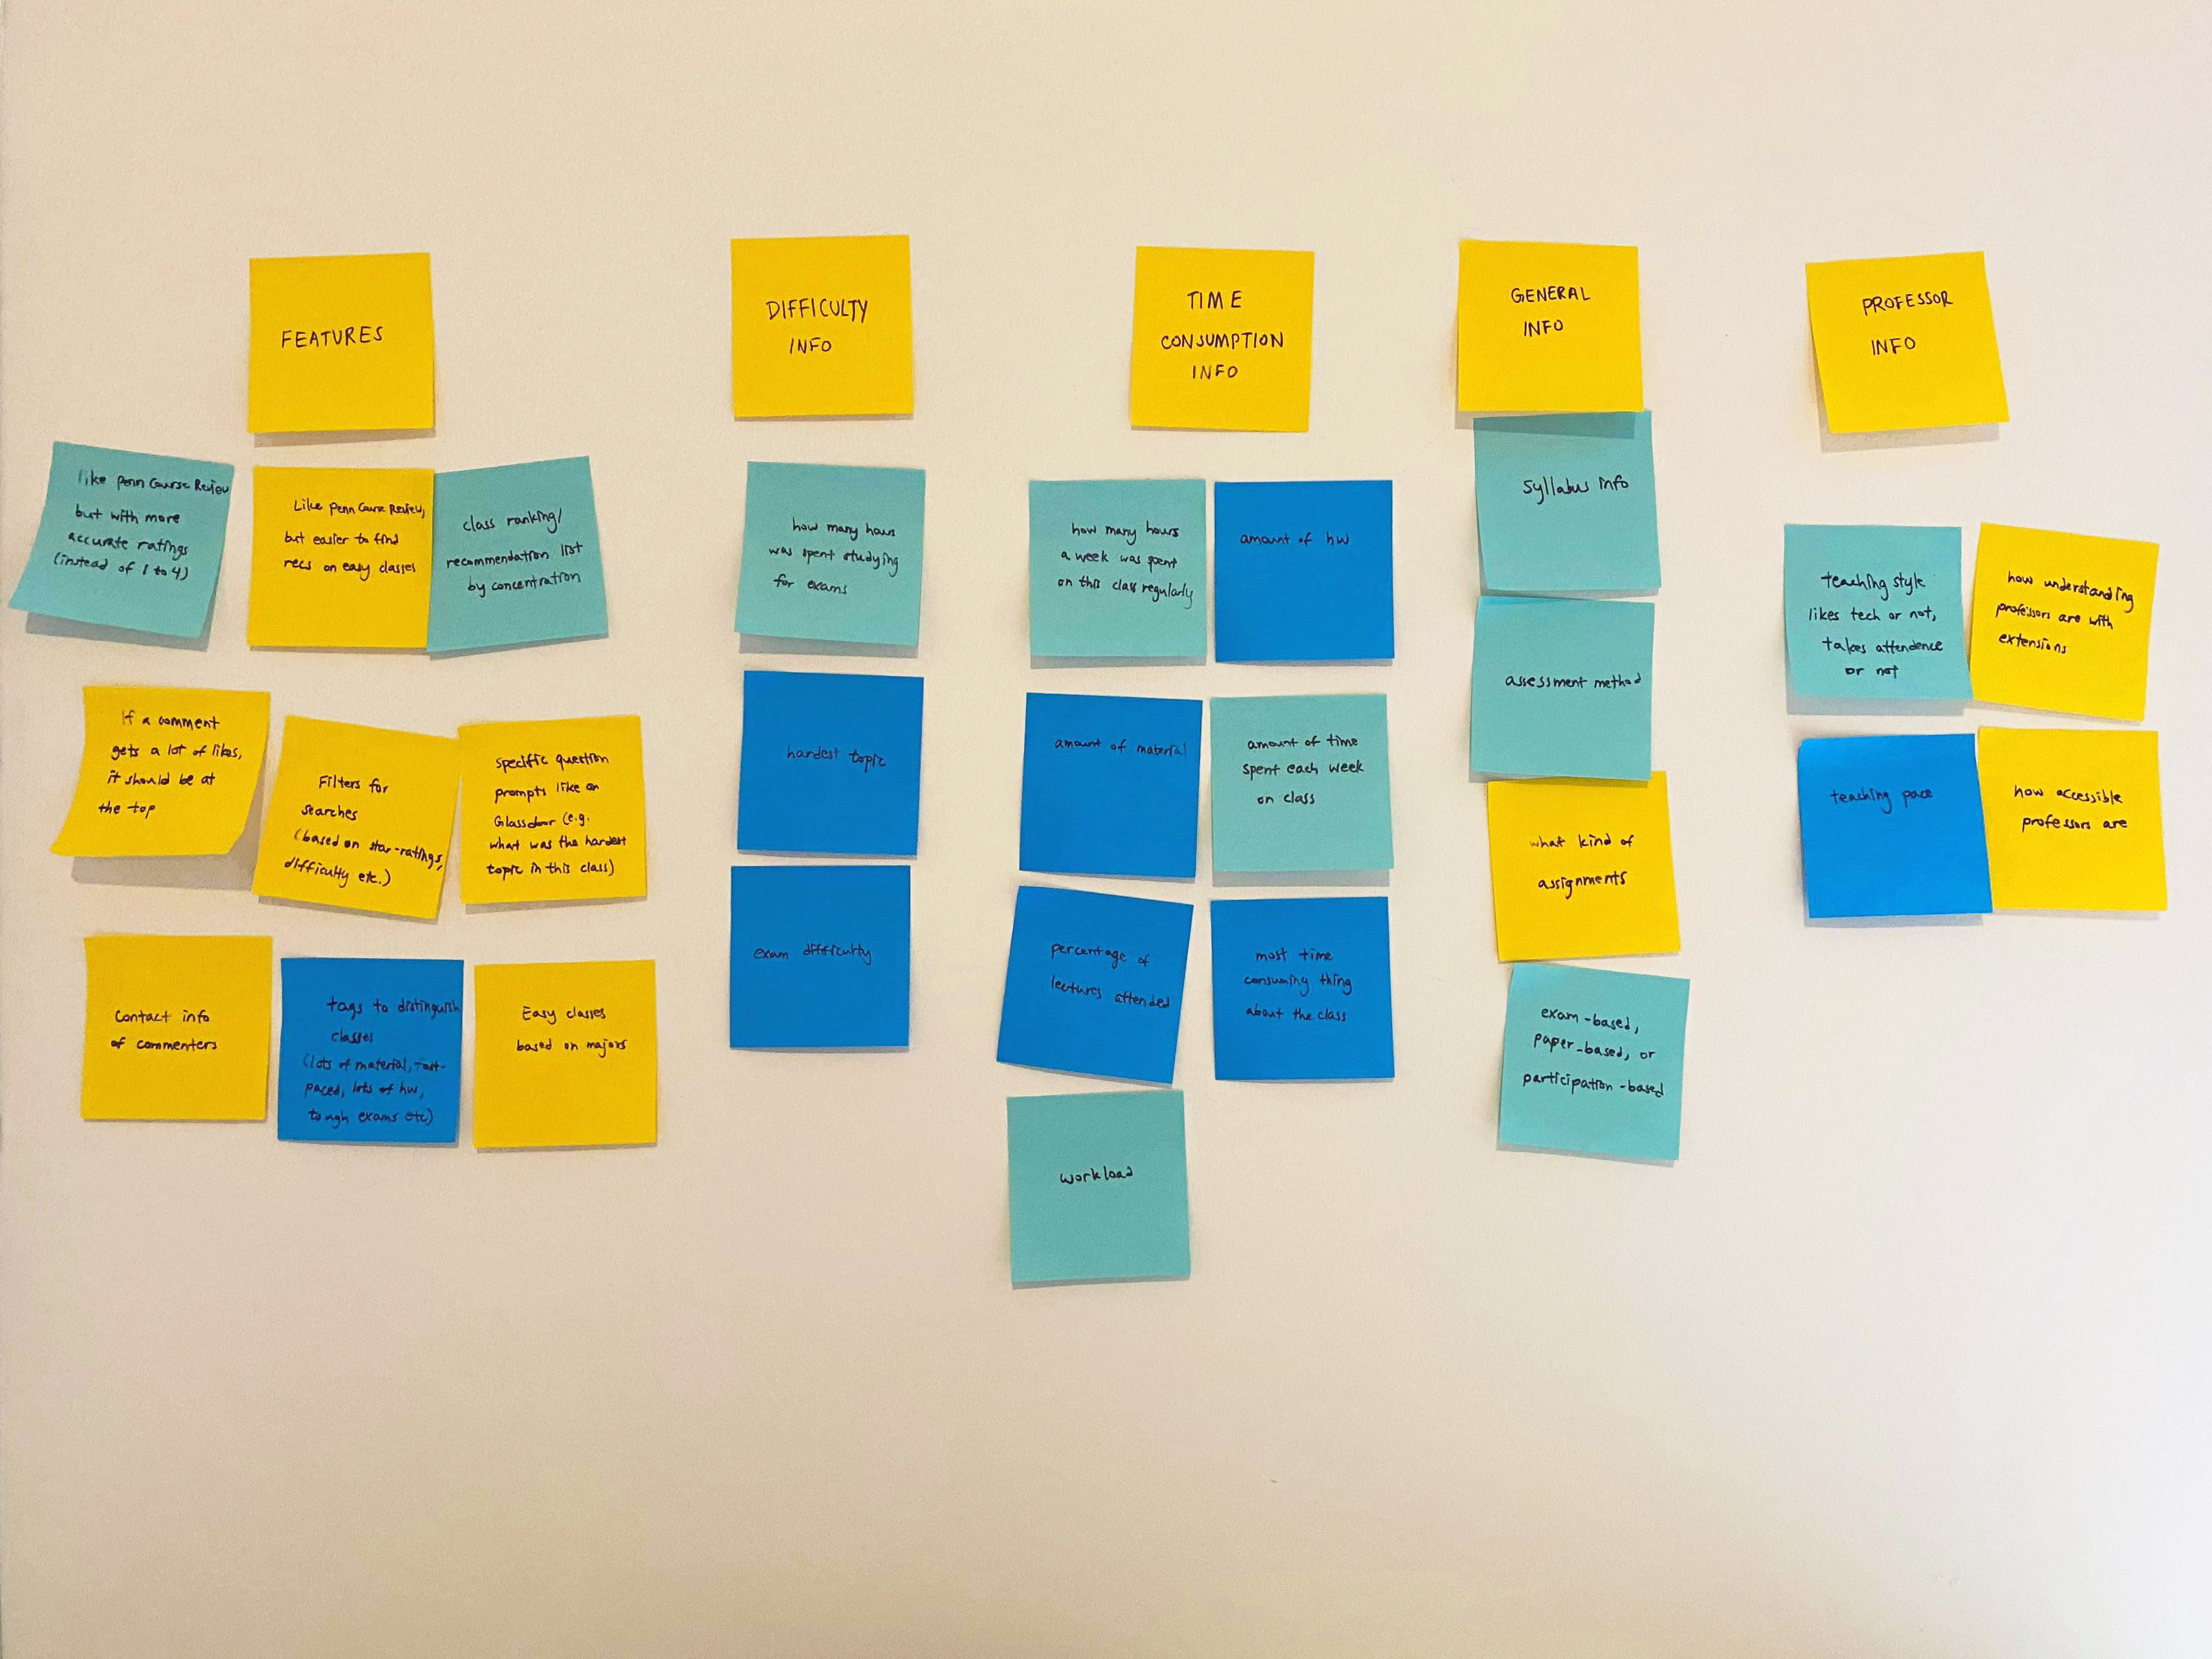 FEATURES
like Penn Course Review
but with more
accurate ratings
(instead of 1 to 4)
Like Penn Course Review,
but easier to find
recs on easy classes
class ranking/
recommendation list
by concentration
If a comment
gets a lot of likes,
it should be at
the top
Filters for
searches
(based on star-ratings,
difficulty etc.)
specific question
prompts like on
Glassdoor (e.g.
what was the hardest
topic in this class)
Contact info
of commenters
tags to distinguish
classes
(lots of material, fast-
paced, lots of hw,
tough exams etc)
Easy classes
based on majors
DIFFICULTY
INFO
how many hours
was spent studying
for exams
hardest topic
exam difficulty
TIME
CONSUMPTION
INFO
how many hours
a week was spent
on this class regularly
amount of hw
amount of material
amount of time
spent each week
on class
percentage of
lectures attended
most time
consuming thing
about the class
workload
GENERAL
INFO
Syllabus info
assessment method
what kind of
assignments
exam-based,
paper-based, or
participation-based
PROFESSOR
INFO
teaching style
likes tech or not,
takes attendence
or not
how understanding
professors are with
extensions
teaching pace
how accessible
professors are